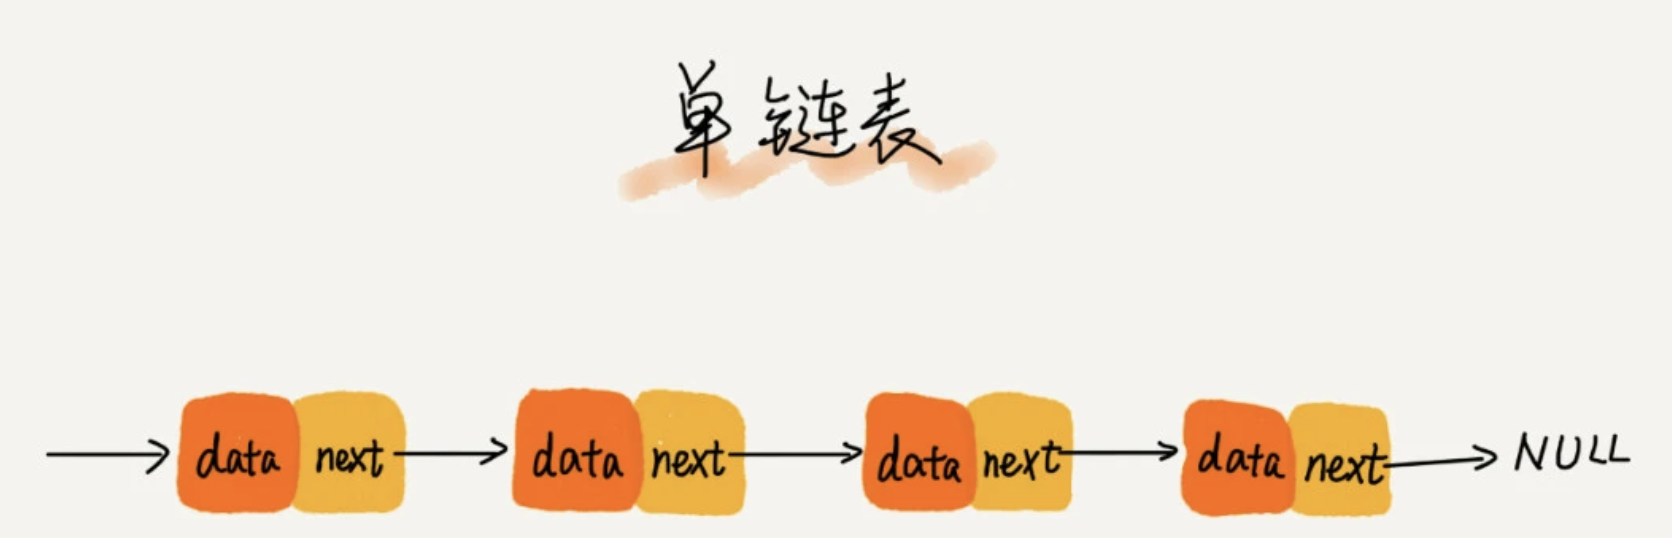 单链表
data next data next data next data next NULL